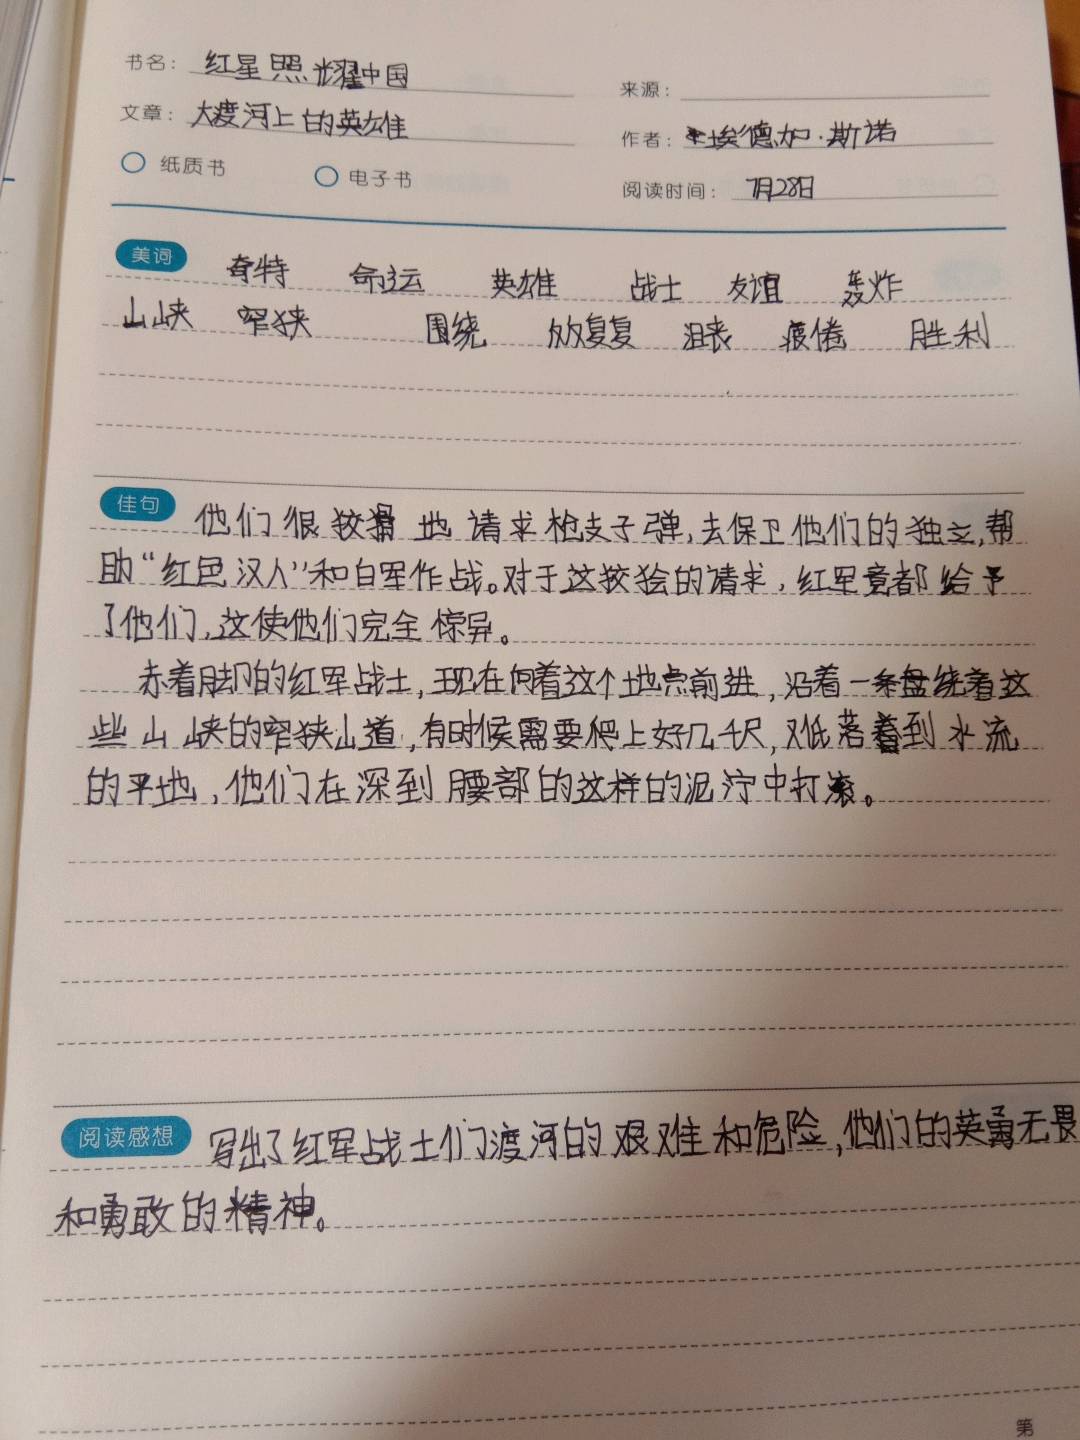 书名：红星照耀中国
来源：
文章：大渡河上的英雄
作者：埃德加·斯诺
纸质书 电子书
阅读时间：7月28日
美词 奇特 命运 英雄 战士 友谊 轰炸
山峡 窄狭 围绕 反反复复 沮丧 疲倦 胜利
佳句 他们很狡猾地请求枪支子弹,去保卫他们的独立,帮
助“红色汉人”和白军作战。对于这狡狯的请求,红军竟都给予
了他们,这使他们完全惊异。
赤着脚的红军战士,现在向着这个地点前进,沿着一条盘绕着这
些山峡的窄狭山道,有时候需要爬上好几千尺,又低落着到水流
的平地,他们在深到腰部的这样的泥泞中打滚。
阅读感想 写出了红军战士们渡河的艰难和危险,他们的英勇无畏
和勇敢的精神。
第